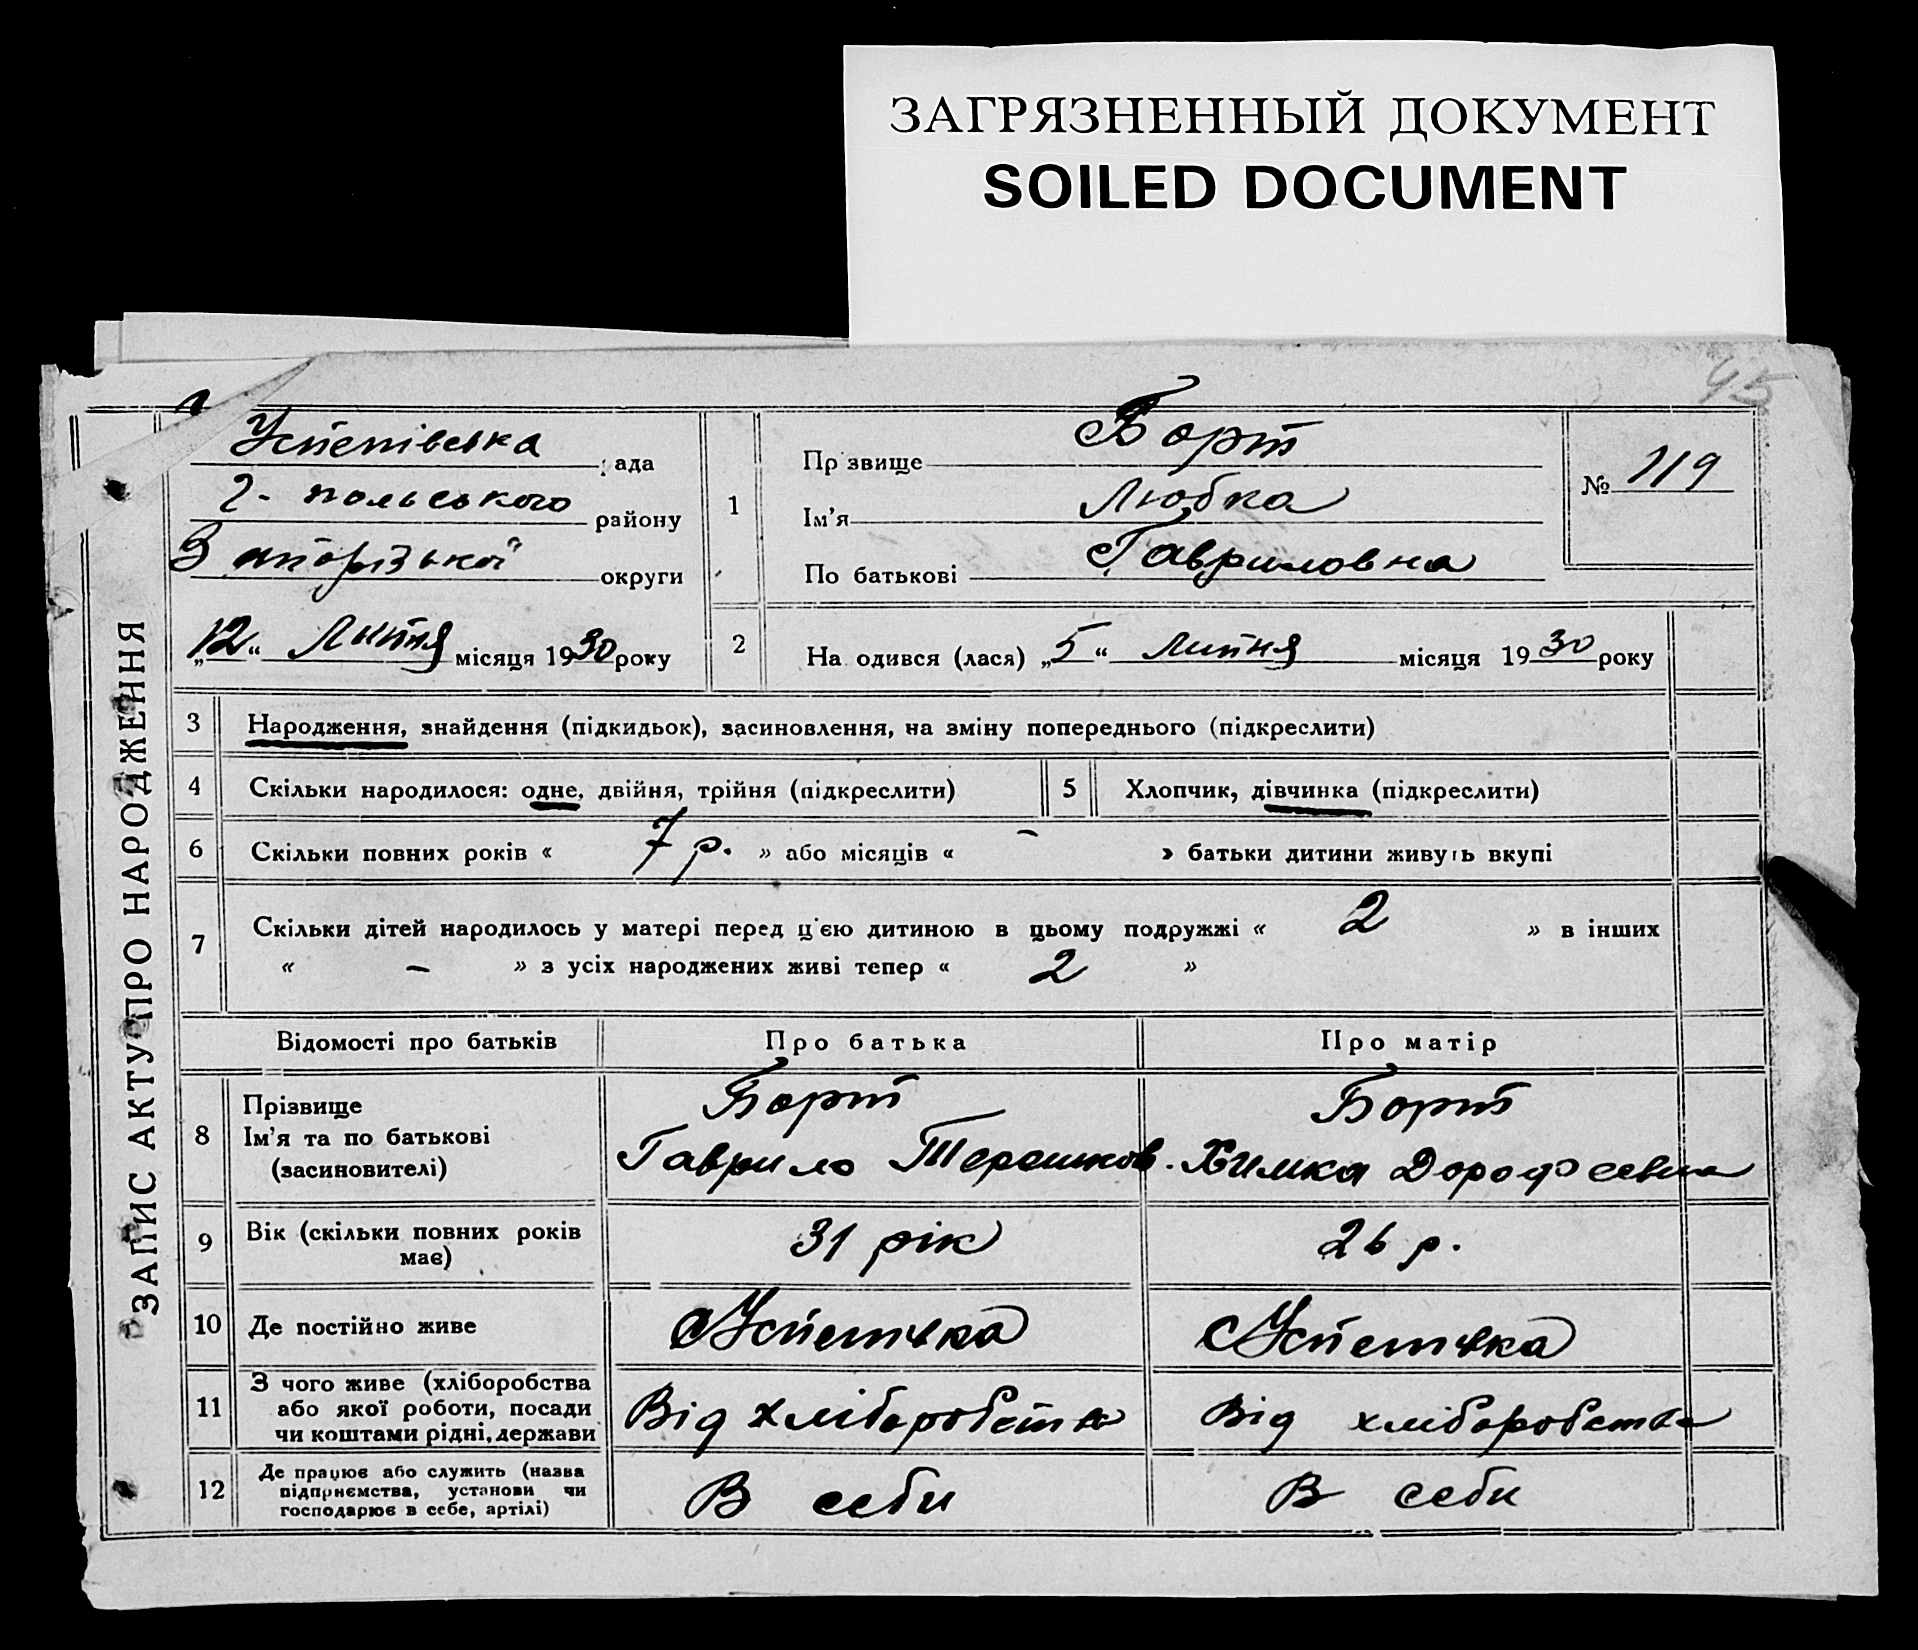 ЗАГРЯЗНЕННЫЙ ДОКУМЕНТ
SOILED DOCUMENT
45
ЗАПИС АКТУ ПРО НАРОДЖЕННЯ
Успенівська рада
Г.-польського району
Запорізької округи
„12“ Липня місяця 1930 року
1
Прізвище Борт
Ім’я Любка
По батькові Гавриловна
№ 119
2
На одився (лася) „5“ Липня місяця 1930 року
3 Народження, знайдення (підкидьок), засиновлення, на зміну попереднього (підкреслити)
4 Скільки народилося: одне, двійня, трійня (підкреслити) 5 Хлопчик, дівчинка (підкреслити)
6 Скільки повних років « 7 р. » або місяців « – » батьки дитини живуть вкупі
7 Скільки дітей народилось у матері перед ц'єю дитиною в цьому подружжі « 2 » в інших
« – » з усіх народжених живі тепер « 2 »
Відомості про батьків Про батька Про матір
8 Прізвище Борт Борт
Ім’я та по батькові Гаврило Терешков. Химка Дорофеевна
(засиновителі)
9 Вік (скільки повних років 31 рік 26 р.
має)
10 Де постійно живе Успенівка Успенівка
11 З чого живе (хліборобства
або якої роботи, посади Від хліборобства Від хліборобства
чи коштами рідні, держави
12 Де працює або служить (назва
підприємства, установи чи В себи В себи
господарює в себе, артілі)